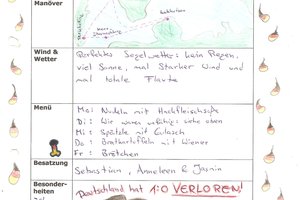 Manöver
Wind &
Wetter
Perfektes Segelwetter: kein Regen,
viel Sonne, mal starker Wind und
mal totale Flaute
Menü
Mo: Nudeln mit Hackfleischsoße
Di: Wir waren unfähig: siehe oben
Mi: Spätzle mit Gulasch
Do: Bratkartoffeln mit Wiener
Fr: Brötchen
Besatzung
Sebastian, Anneleen & Jasmin
Besonder-
heiten
Deutschland hat 1:0 VERLOREN!